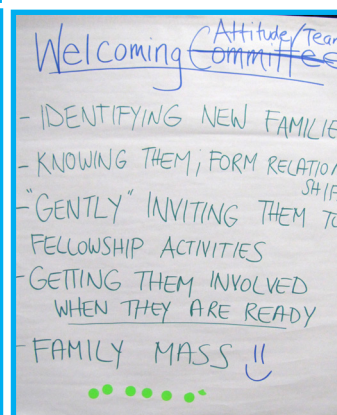 Attitude/Team
Welcoming Committee
- IDENTIFYING NEW FAMILIE
- KNOWING THEM; FORM RELATION
SHIP
- "GENTLY" INVITING THEM TO
FELLOWSHIP ACTIVITIES
- GETTING THEM INVOLVED
WHEN THEY ARE READY
- FAMILY MASS